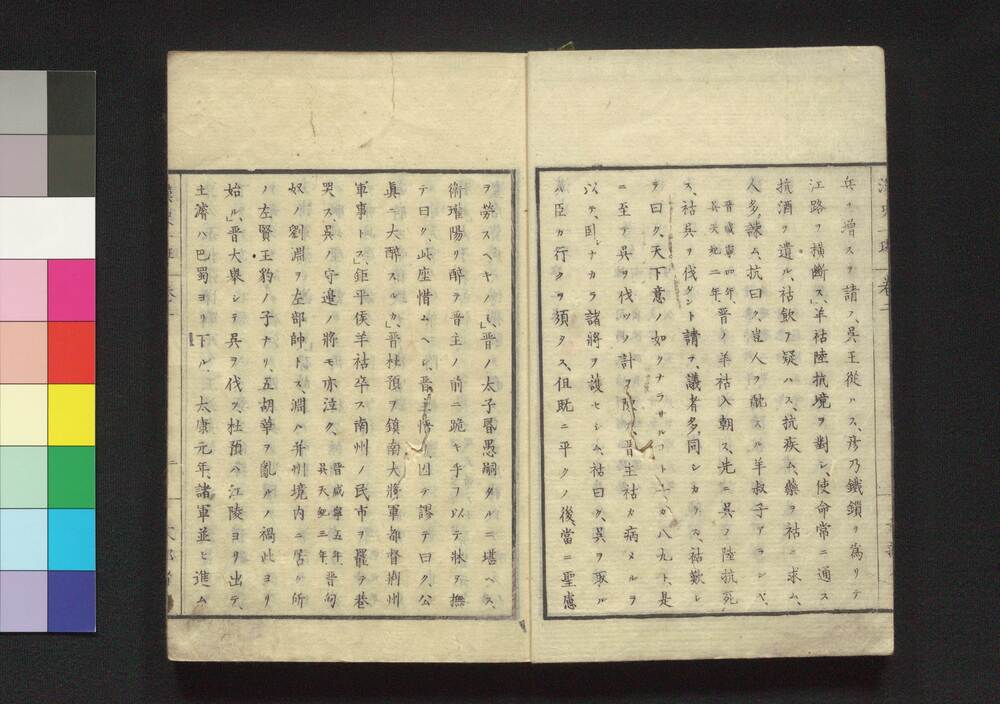 兵ヲ増スヲ請フ、呉王從ハス、彦乃鐵鎖ヲ爲リテ
江路ヲ横斷ス」羊祜陸抗境ヲ對シ、使命常ニ通ス
抗酒ヲ遺ル、祜飲ヲ疑ハス、抗疾ム、藥ヲ祜ニ求ム、
人多ク諫ム、抗曰ク、豈人ヲ酖スル羊叔子アランヤ、
晋咸寧四年、
呉天紀二年、
晋ノ羊祜入朝ス、先ニ呉ノ陸抗死
ス、祜呉ヲ伐ダント請フ、議者多ク同シカラス、祜歎シ
テ曰ク、天下意ノ如クナラサルコト十ニ八九ト、是
ニ至テ呉ヲ伐ツノ計ヲ陳ス、晋主祜カ病メルヲ
以テ、臥ナカラ諸將ヲ護セシム、祜曰ク、呉ヲ取ル
ハ臣カ行クヲ須タス、但既ニ平クノ後、當ニ聖慮
ヲ勞スヘキノミ」晋ノ太子昏愚嗣タルニ堪ヘス、
衛瓘陽リ醉テ晋主ノ前ニ跪キ手ヲ以テ牀ヲ撫
テ曰ク、此座惜ムヘシ、晋主悟リ、因テ謬テ曰ク、公
眞ニ大醉スルカ」晋杜預ヲ鎮南大將軍都督荊州
軍事トス」鉅平侯羊祜卒ス南州ノ民市ヲ罷テ巷
哭ス、呉ノ守邊ノ將モ亦泣ク、
晋咸寧五年、
呉天紀三年、
晋匈
奴ノ劉淵ヲ左部帥トス、淵ハ并州境内ニ居ル所
ノ左賢王豹ノ子ナリ、五胡華ヲ亂ルノ禍此ヨリ
始ル」晋大舉シテ呉ヲ伐ツ、杜預ハ江陵ヨリ出テ、
王濬ハ巴蜀ヨリ下ル、太康元年、諸軍並ヒ進ム